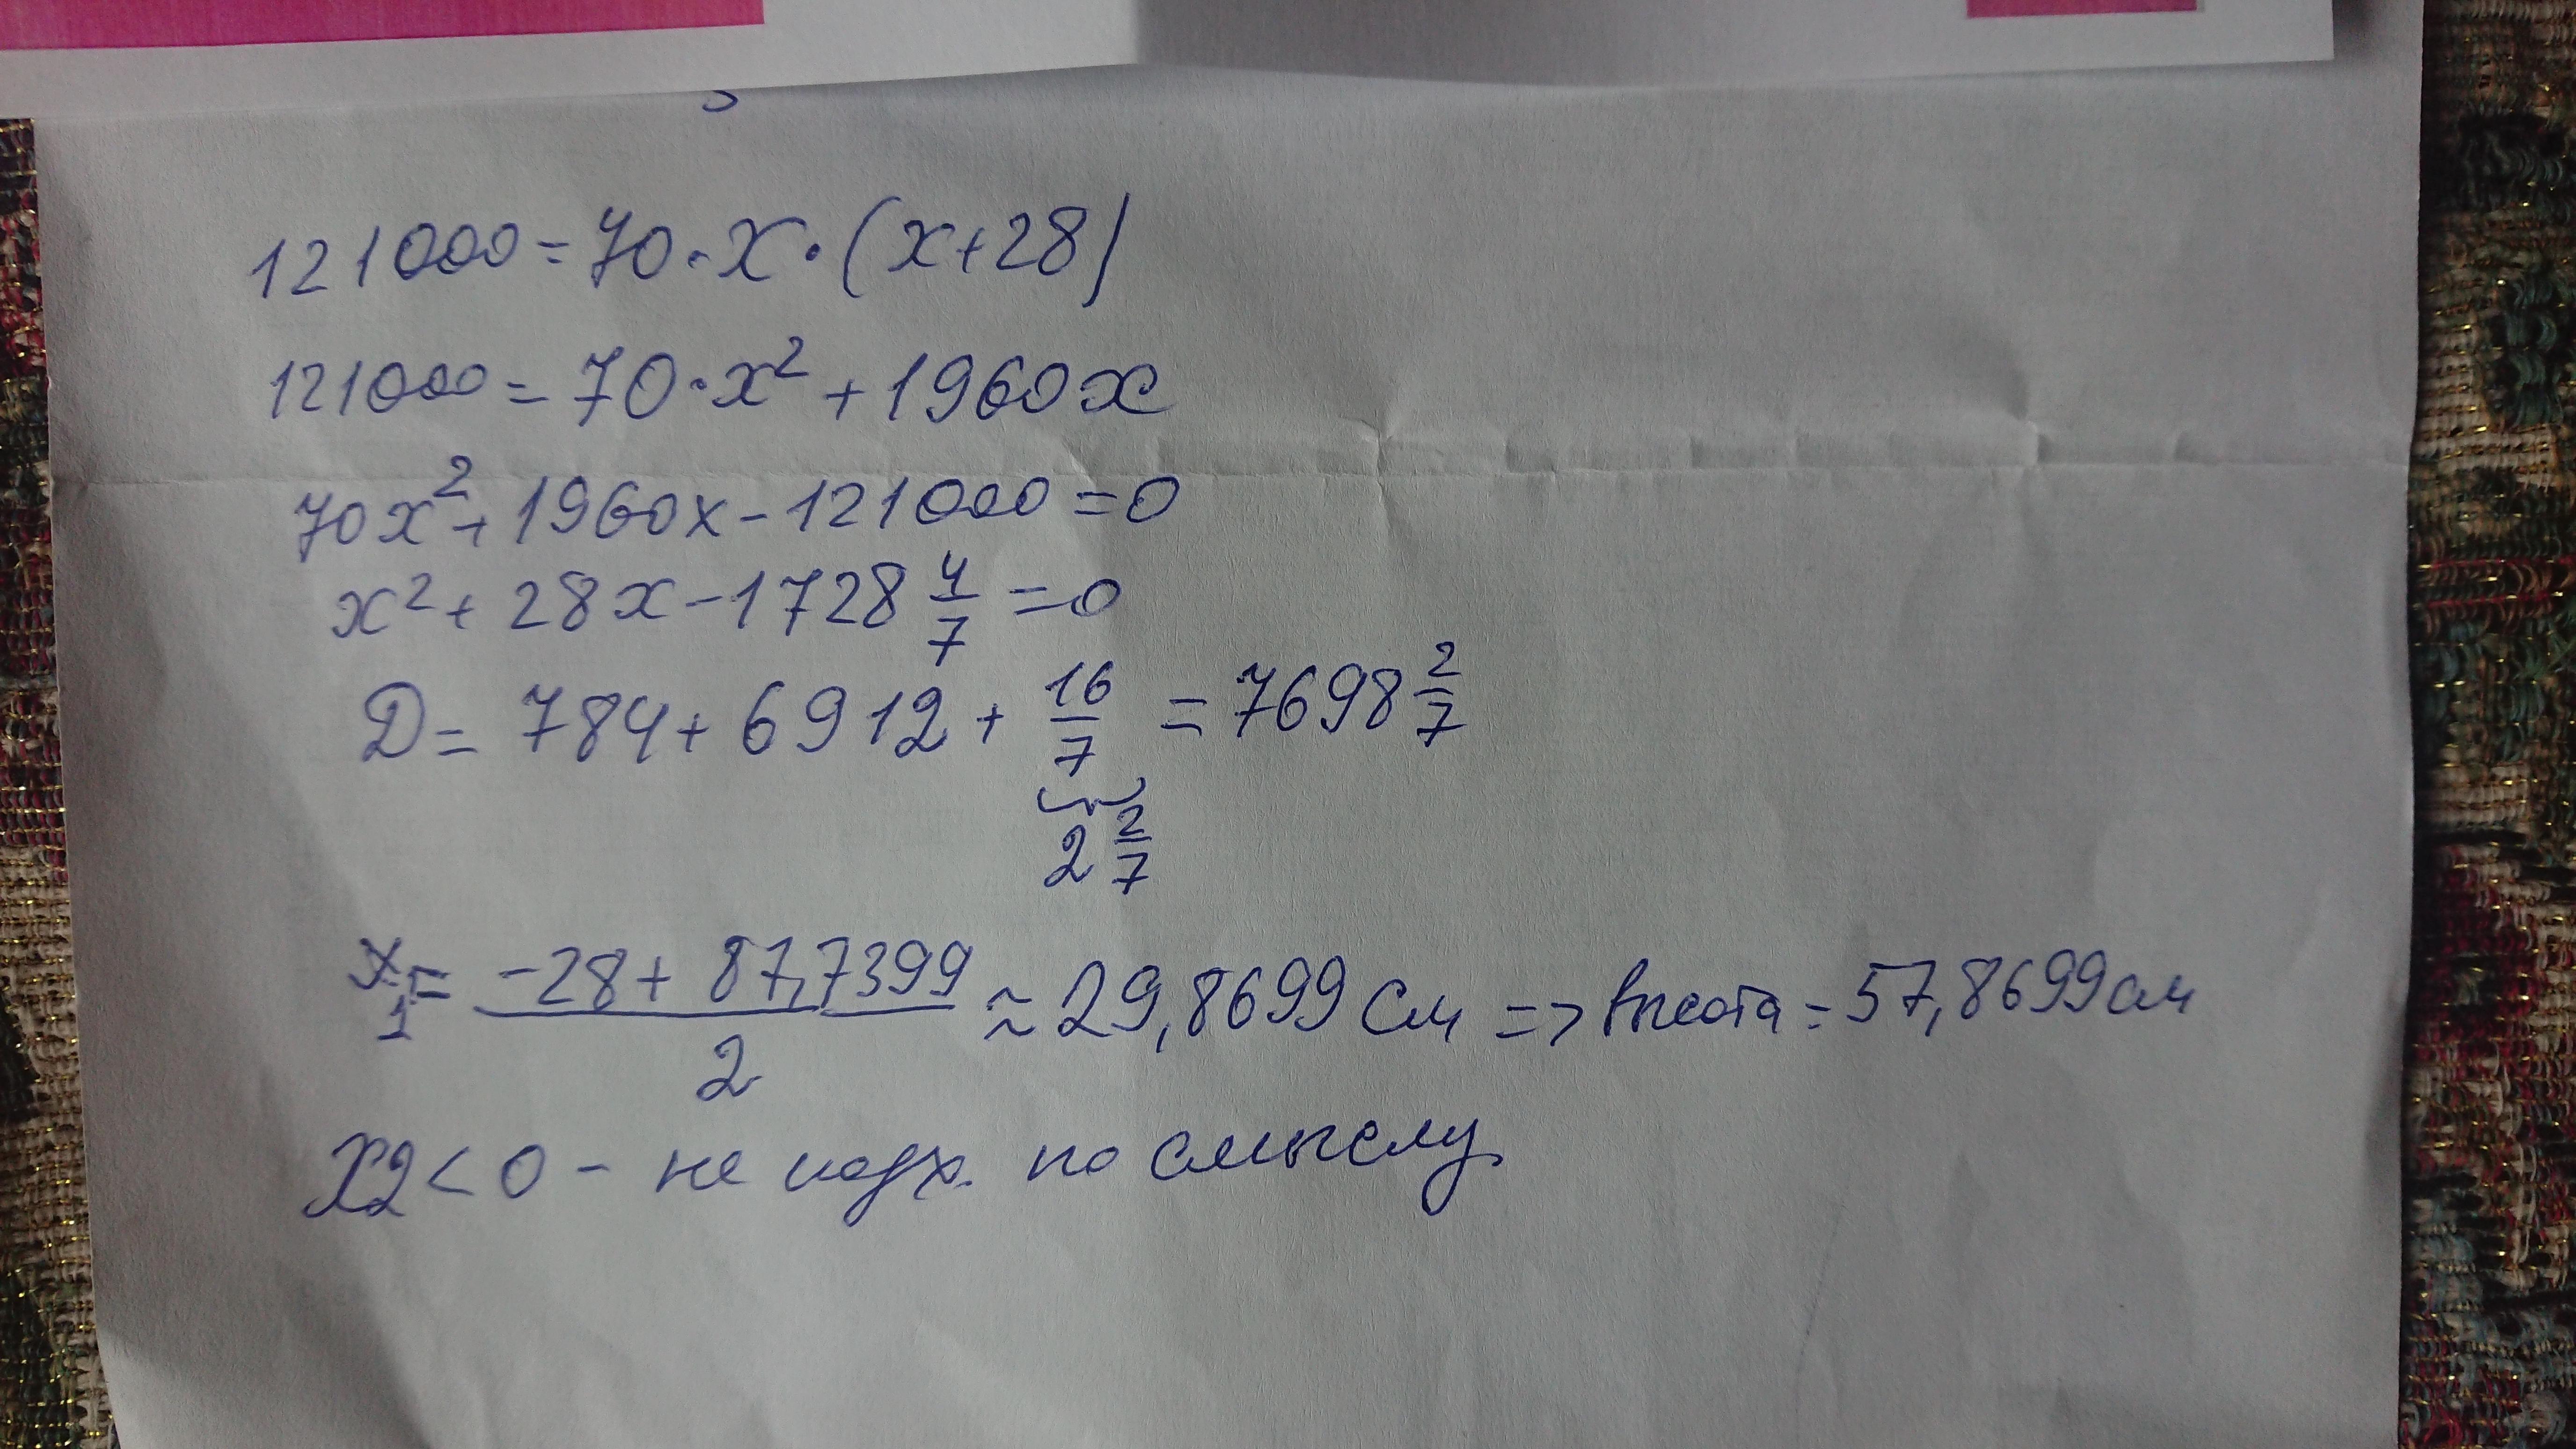 121000=70·x·(x+28)
121000=70·x²+1960x
70x²+1960x-121000=0
x²+28x-1728 4/7=0
D=784+6912+16/7=7698 2/7
2 2/7
x₁=(-28+87,7399)/2≈29,8699 см => высота = 57,8699 см
x2<0 - не подх. по смыслу